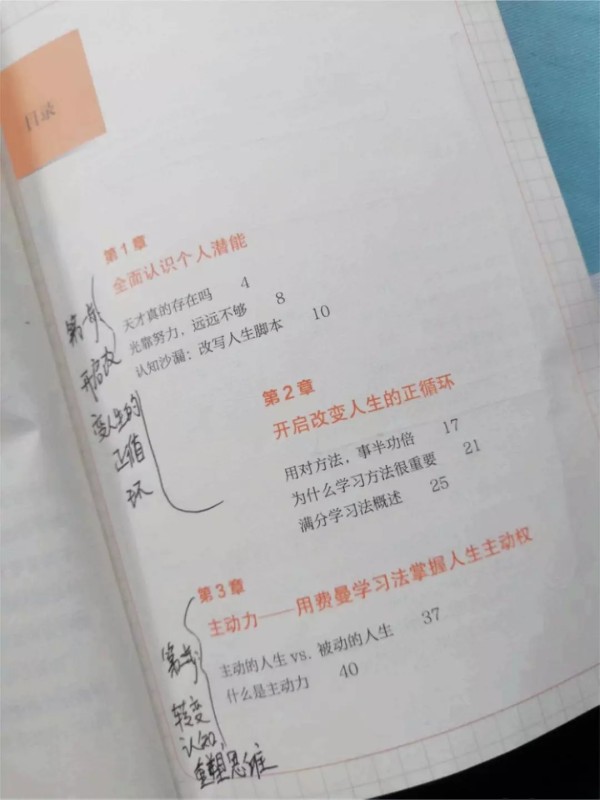 目录
第1章
全面认识个人潜能
天才真的存在吗 4
光靠努力，远远不够 8
认知沙漏：改写人生脚本 10
开启改
变人生的
正循
环
第2章
开启改变人生的正循环
用对方法，事半功倍 17
为什么学习方法很重要 21
满分学习法概述 25
第3章
主动力——用费曼学习法掌握人生主动权
主动的人生 vs. 被动的人生 37
什么是主动力 40
转变
认知，
重塑思维